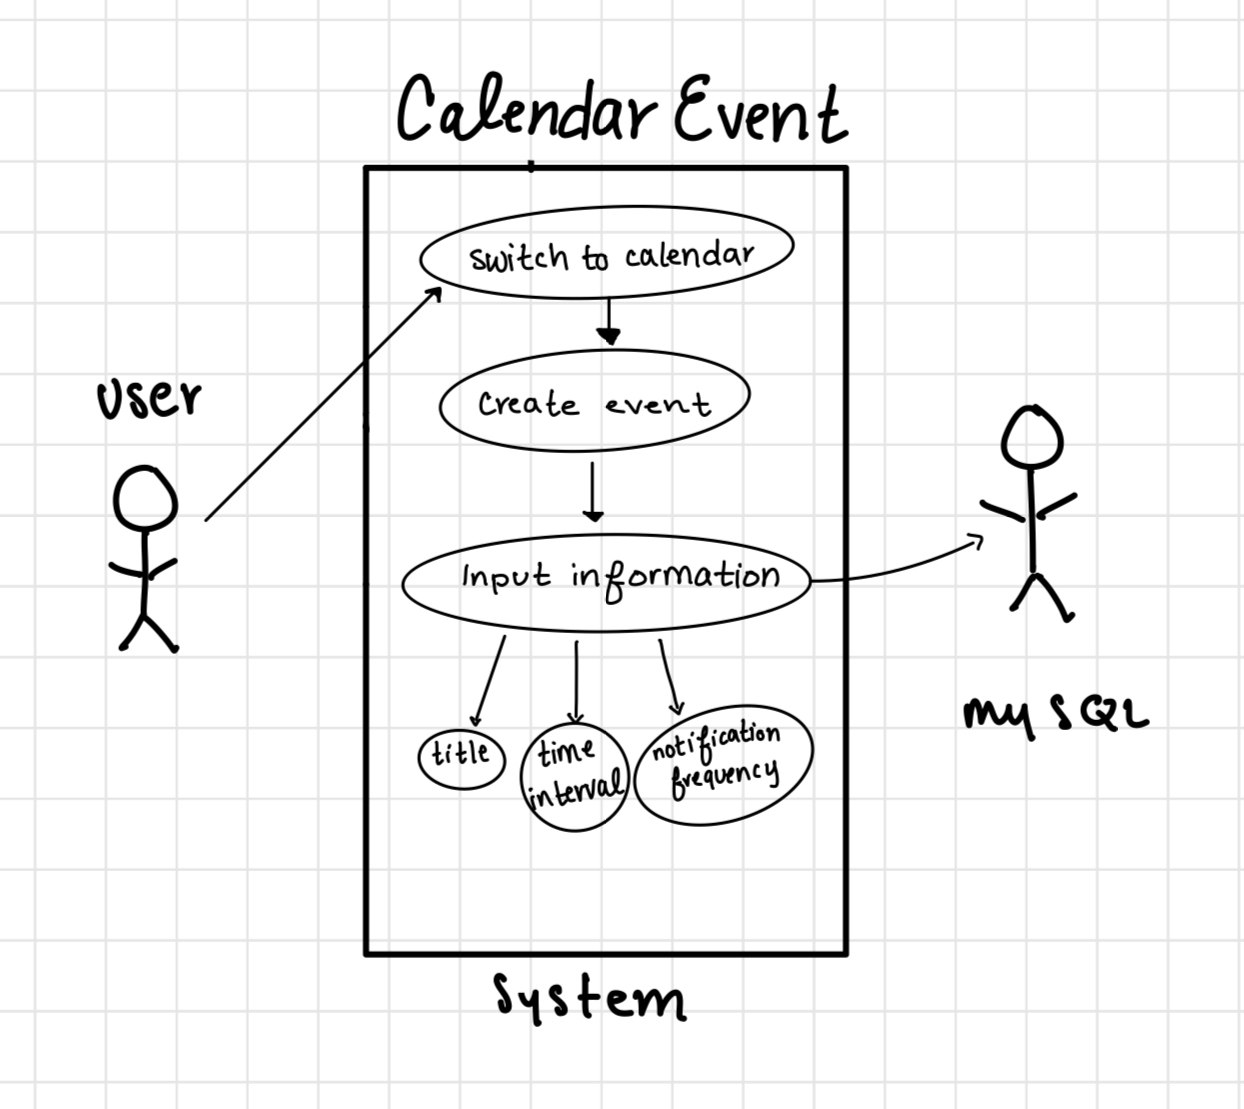 Calendar Event
switch to calendar
User
Create event
Input information
my SQL
title
time
interval
notification
frequency
System